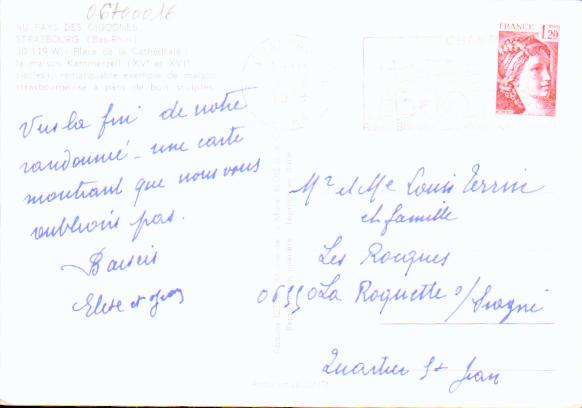 06700016
AU PAYS DES CIGOGNES
STRASBOURG (Bas-Rhin)
30 119 W - Place de la Cathédrale :
la maison Kammerzell (XVe et XVIe
siècles), remarquable exemple de maison
strasbourgeoise à pans de bois sculptés.
FRANCE
1,20
Vers la fin de notre
randonnée - une carte
montrant que nous vous
oublions pas.
Baisers
Mr et Me Louis Terrin
et famille
Les Rocques
06550 La Roquette s/Siagne
Quartier St Jean